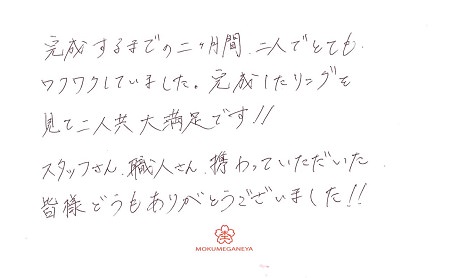 完成するまでの二ヶ月間、二人でとても
ワクワクしていました。完成したリングを
見て二人共大満足です!!
スタッフさん、職人さん、携わっていただいた
皆様どうもありがとうございました!!
MOKUMEGANEYA